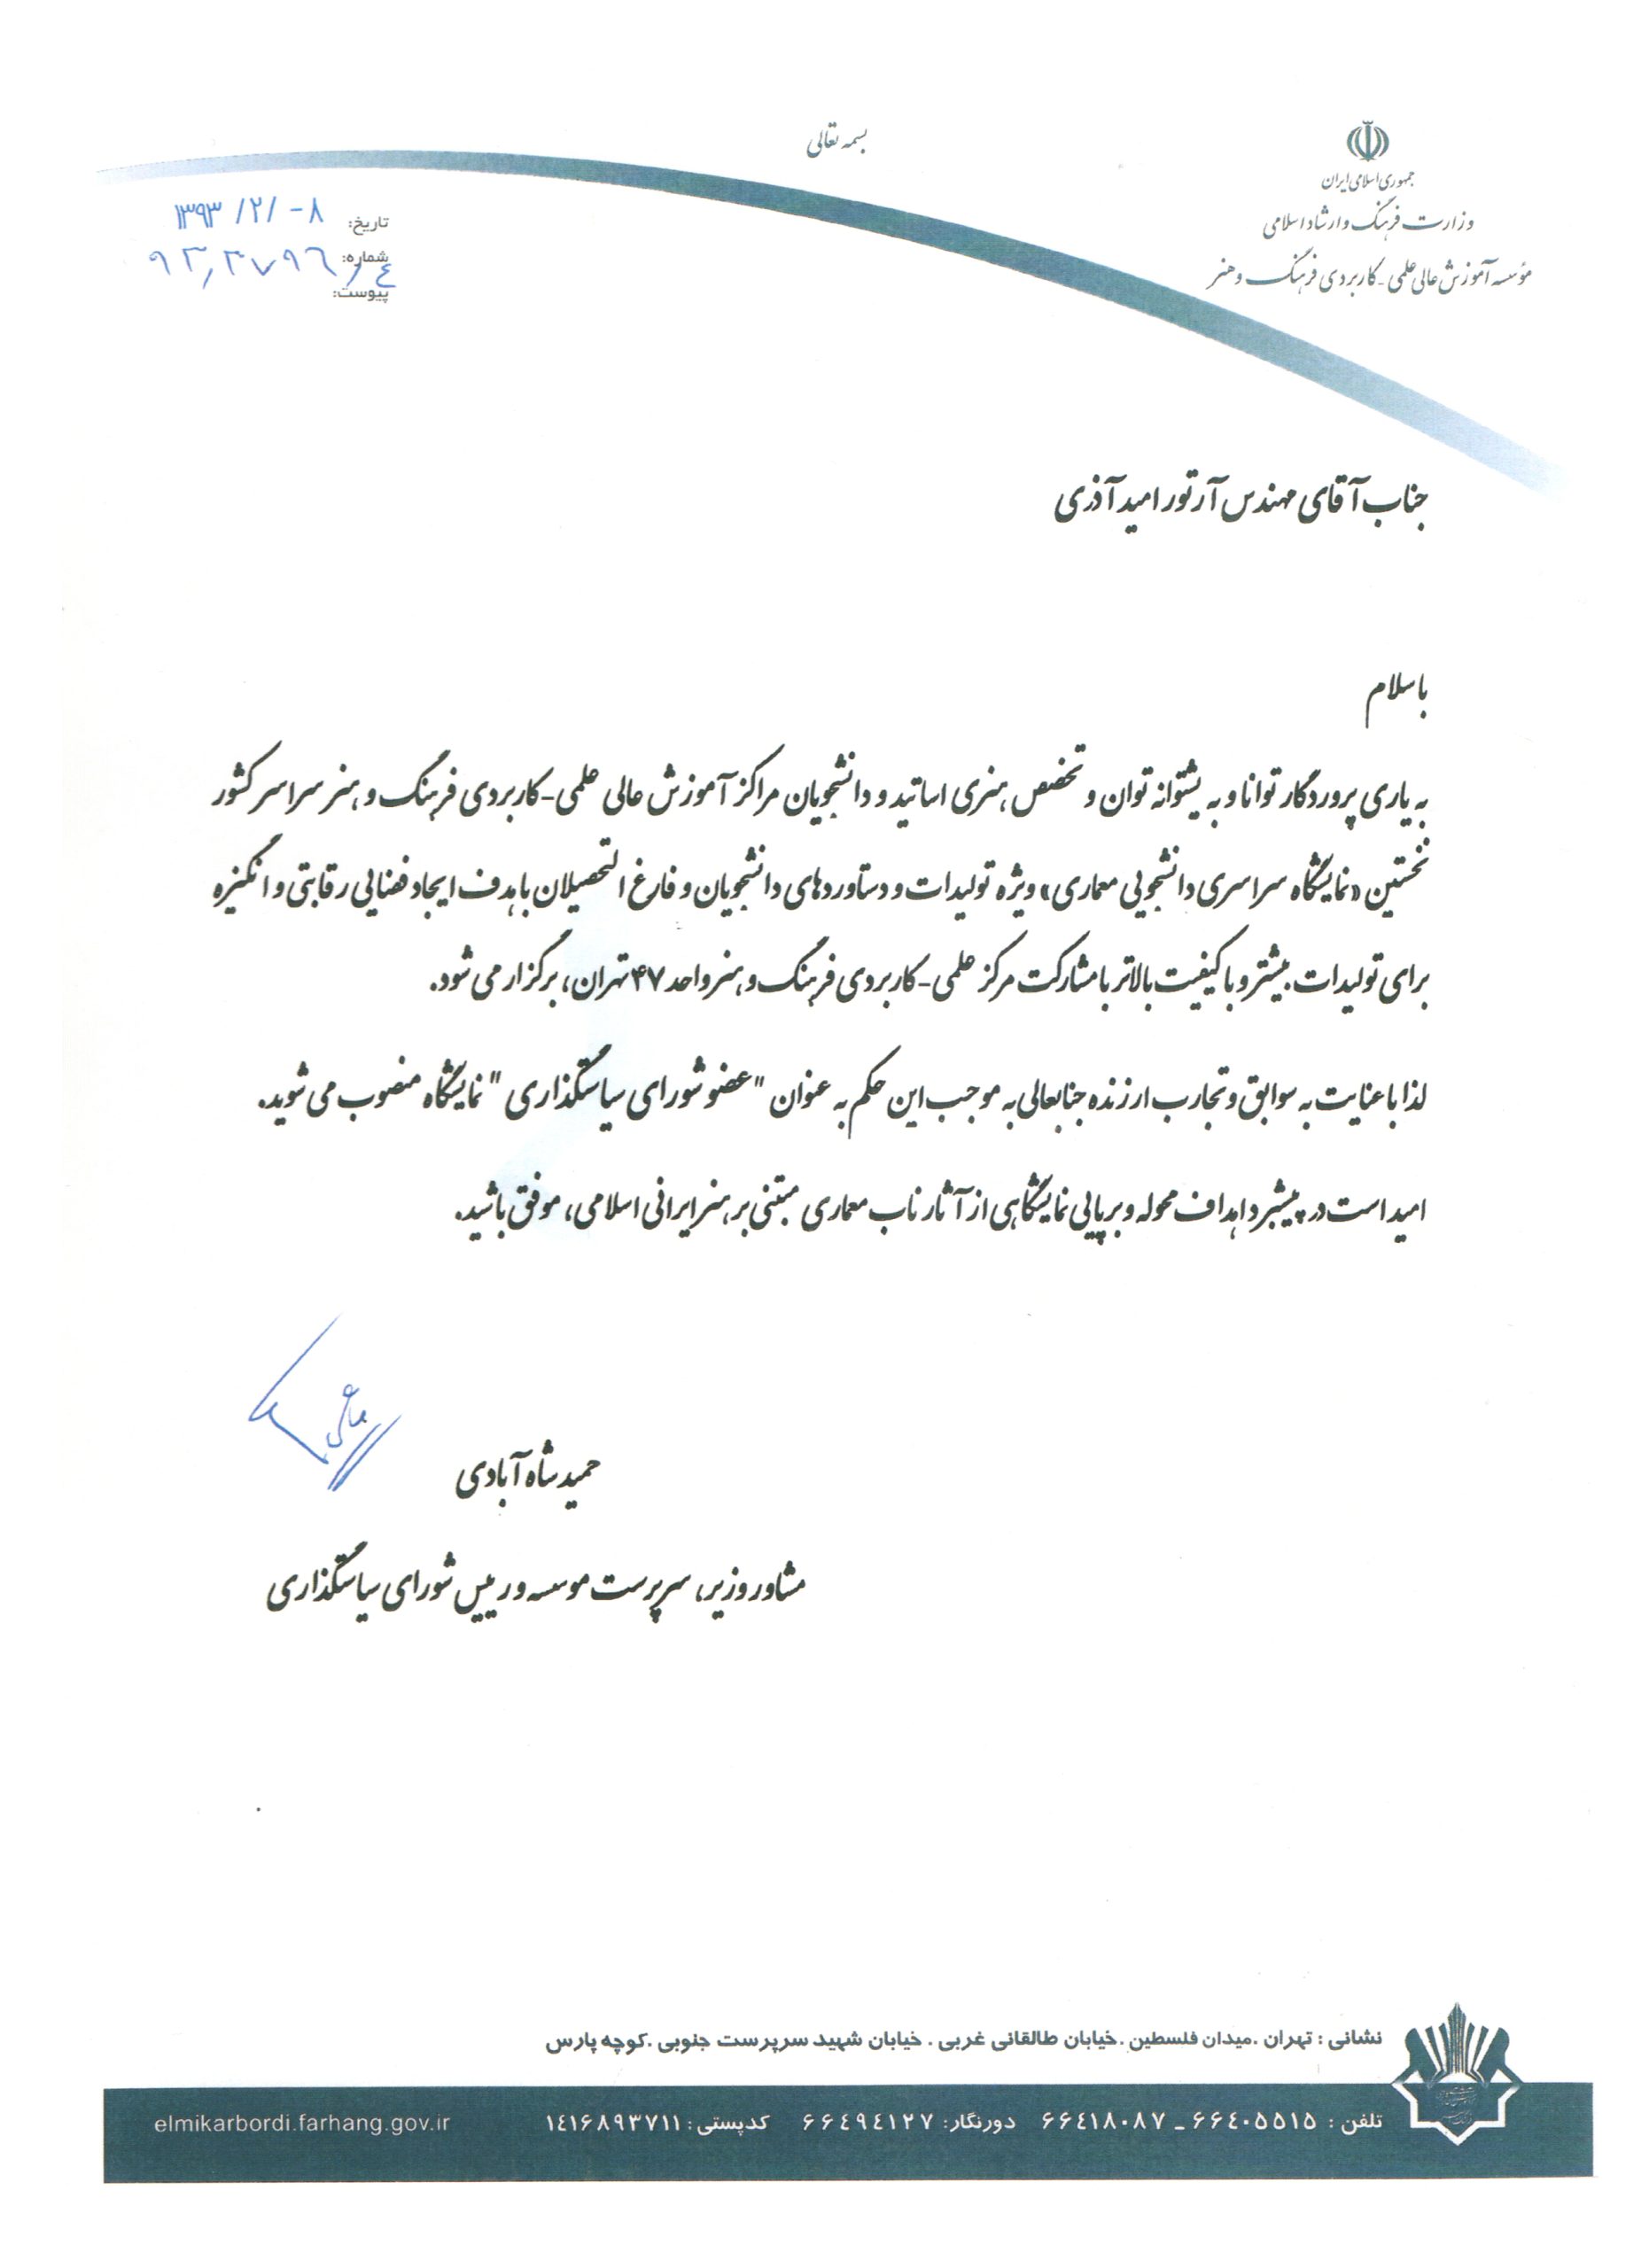 بسمه تعالی
جمهوری اسلامی ایران
وزارت فرهنگ و ارشاد اسلامی
مؤسسه آموزش عالی علمی - کاربردی فرهنگ و هنر
تاریخ: ۱۳۹۳/۲/-۸
شماره: ۹۳,۳۷۹۶/۴
پیوست:
جناب آقای مهندس آرتور امید آذری
با سلام
به یاری پروردگار توانا و به پشتوانه توان و تخصص هنری اساتید و دانشجویان مراکز آموزش عالی علمی-کاربردی فرهنگ و هنر سراسر کشور
نخستین «نمایشگاه سراسری دانشجویی معماری» ویژه تولیدات و دستاوردهای دانشجویان و فارغ التحصیلان با هدف ایجاد فضایی رقابتی و انگیزه
برای تولیدات بیشتر و با کیفیت بالاتر با مشارکت مرکز علمی-کاربردی فرهنگ و هنر واحد ۴۷ تهران، برگزار می شود.
لذا با عنایت به سوابق و تجارب ارزنده جنابعالی به موجب این حکم به عنوان "عضو شورای سیاستگذاری" نمایشگاه منصوب می شوید.
امید است در پیشبرد اهداف محوله و برپایی نمایشگاهی از آثار ناب معماری مبتنی بر هنر ایرانی اسلامی، موفق باشید.
حمید شاه آبادی
مشاور وزیر، سرپرست موسسه و رییس شورای سیاستگذاری
نشانی : تهران .میدان فلسطین .خیابان طالقانی غربی . خیابان شهید سرپرست جنوبی .کوچه پارس
تلفن : ۶۶۴۰۵۵۱۵ ـ ۶۶۴۱۸۰۸۷ دورنگار: ۶۶۴۹۴۱۲۷ کدپستی : ۱۴۱۶۸۹۳۷۱۱ elmikarbordi.farhang.gov.ir